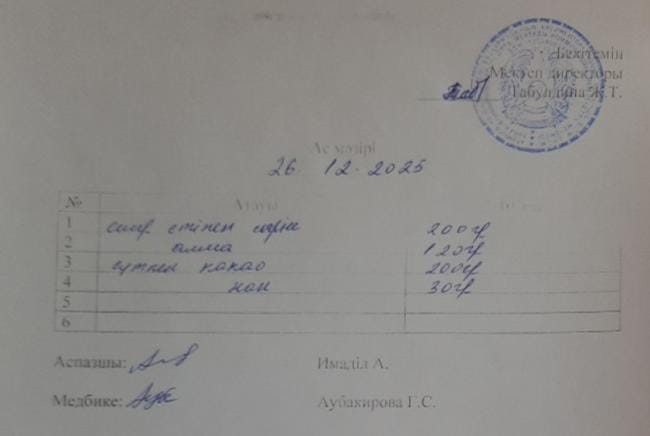 Бекітемін
Мектеп директоры
Табулдина Ж.Т.
Ас мәзірі
26. 12. 2025
№ Атауы
1 сиыр етінен 200гр
2 алма 120гр
3 сүтпен какао 200гр
4 нан 30гр
5
6
Аспазшы: Имаділ А.
Медбике: Аубакирова Г.С.